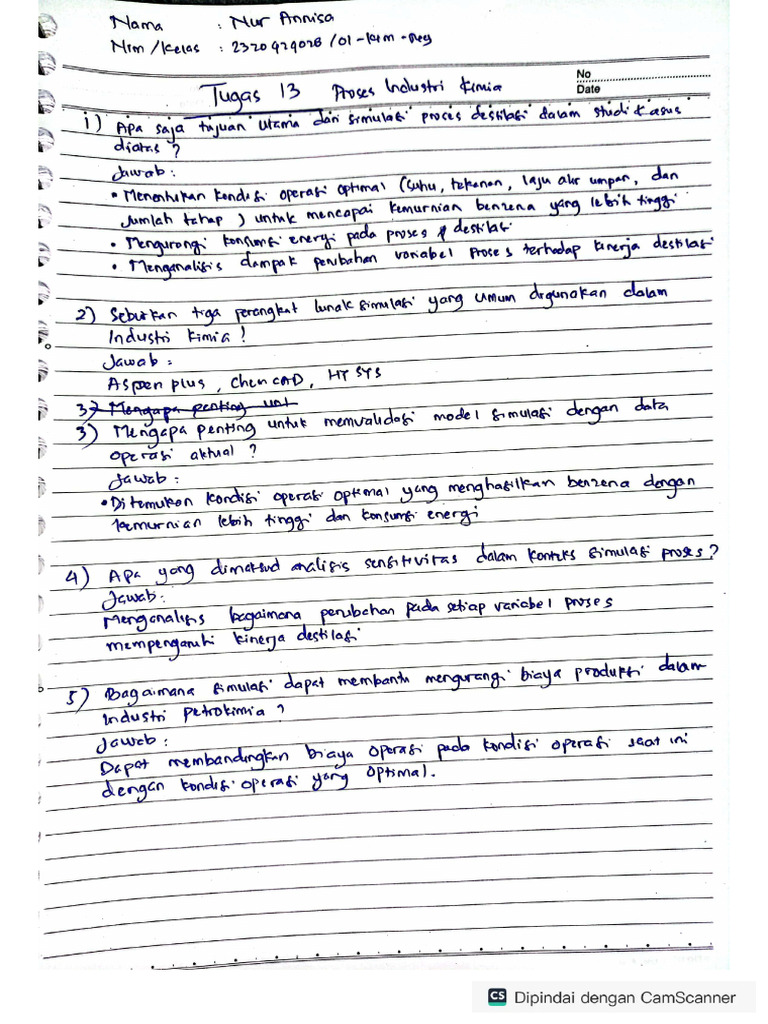 Nama : Nur Annisa
Nim/Kelas : 2320424028 /01-Kim-Reg
No
Date
Tugas 13 Proses Industri Kimia
1) Apa saja tujuan utama dari simulasi proses destilasi dalam studi kasus
diatas ?
Jawab :
• Menentukan kondisi operasi optimal (suhu, tekanan, laju alir umpan, dan
Jumlah tahap ) untuk mencapai kemurnian benzena yang lebih tinggi
• Mengurangi konsumsi energi pada proses destilasi
• Menganalisis dampak perubahan variabel proses terhadap kinerja destilasi
2) Sebutkan tiga perangkat lunak simulasi yang umum digunakan dalam
Industri kimia !
Jawab :
Aspen plus, Chem CAD, HYSYS
3) Mengapa penting unt
3) Mengapa penting untuk memvalidasi model simulasi dengan data
operasi aktual ?
Jawab :
• Ditemukan kondisi operasi optimal yang menghasilkan benzena dengan
kemurnian lebih tinggi dan konsumsi energi
4) Apa yang dimaksud analisis sensitivitas dalam konteks simulasi proses ?
Jawab :
Menganalisis bagaimana perubahan pada setiap variabel proses
mempengaruhi kinerja destilasi
5) Bagaimana simulasi dapat membantu mengurangi biaya produksi dalam
industri petrokimia ?
Jawab :
Dapat membandingkan biaya operasi pada kondisi operasi saat ini
dengan kondisi operasi yang optimal.
CS Dipindai dengan CamScanner